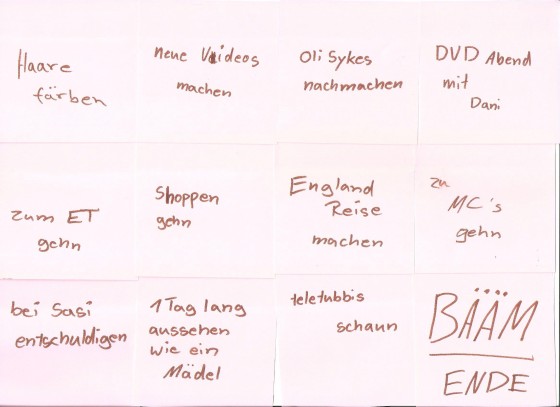 Haare
färben
neue Videos
machen
Oli Sykes
nachmachen
DVD Abend
mit
Dani
zum ET
gehn
Shoppen
gehn
England
Reise
machen
zu
MC's
gehn
bei Sasi
entschuldigen
1 Tag lang
aussehen
wie ein
Mädel
teletubbis
schaun
BÄÄM
ENDE